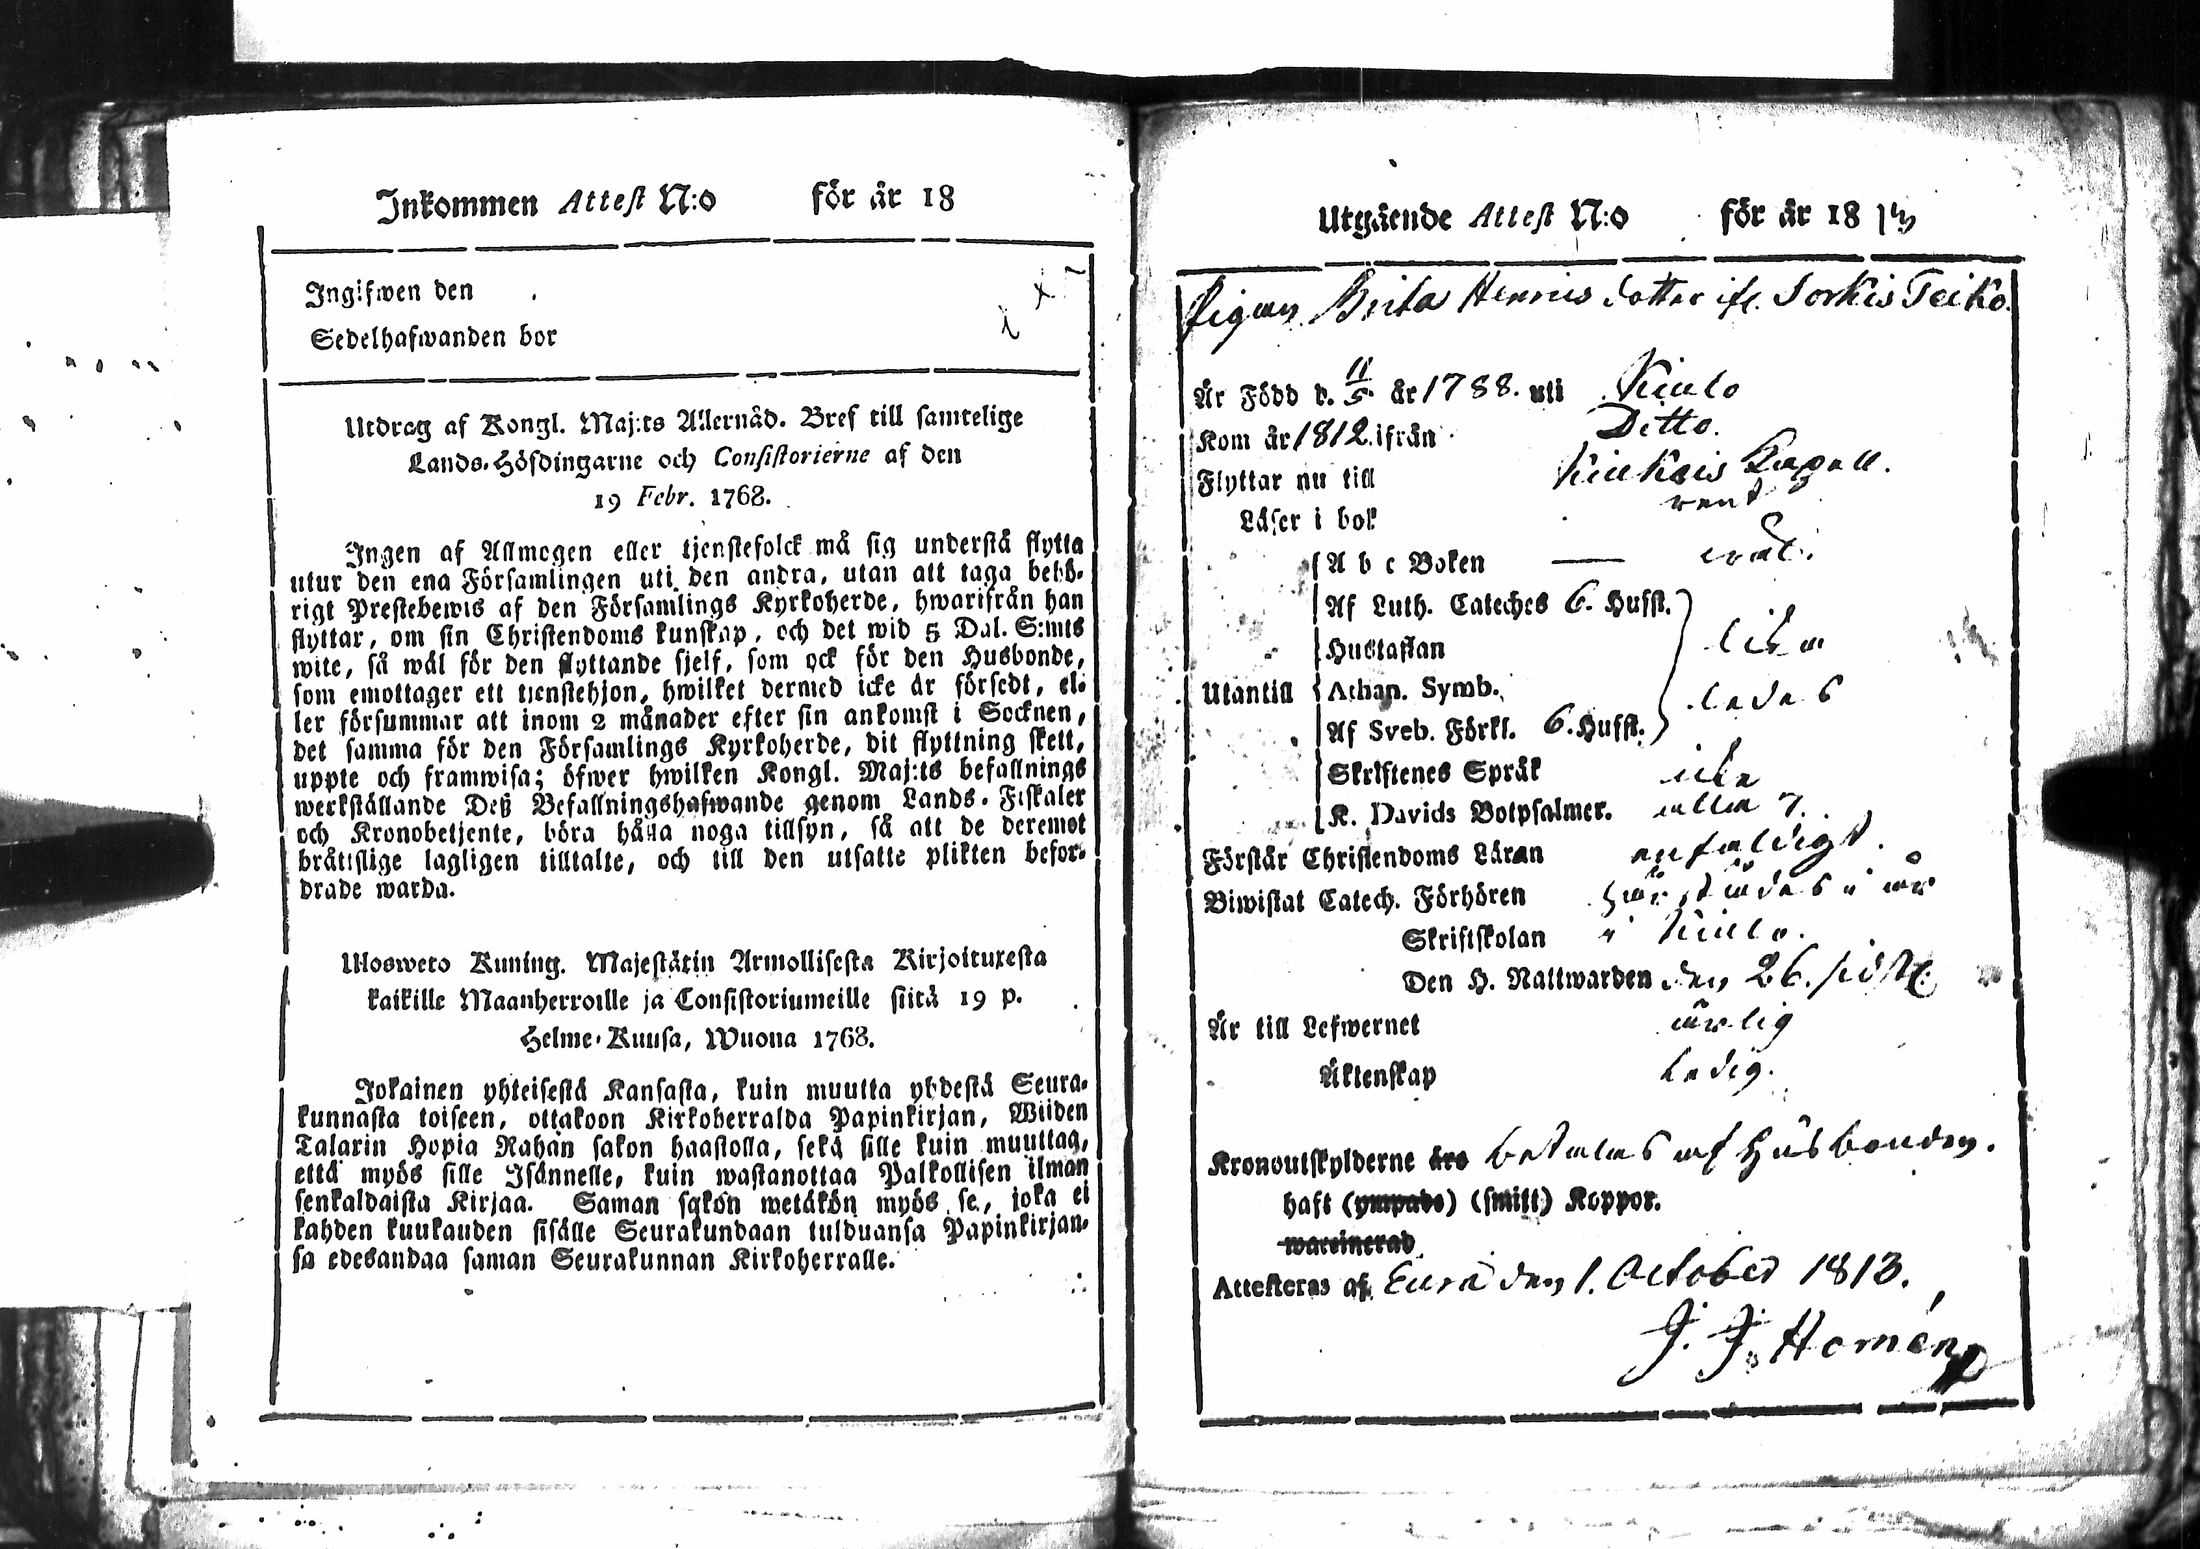 Inkommen Attest N:o för år 18
Ingifwen den
Sedelhafwanden bor
Utdrag af Kongl. Maj:ts Allernåd. Bref till samtelige
Lands-Höfdingarne och Consistorierne af den
19 Febr. 1768.
Ingen af Allmogen eller tjenstefolck må sig understå flytta
utur den ena Församlingen uti den andra, utan att taga behö-
rigt Prestebewis af den Församlings Kyrkoherde, hwarifrån han
flyttar, om sin Christendoms kunskap, och det wid 5 Dal. S:mts
wite, så wäl för den flyttande sjelf, som ock för den Husbonde,
som emottager ett tjenstehjon, hwilket dermed icke är försedt, el-
ler försummar att inom 2 månader efter sin ankomst i Socknen,
det samma för den Församlings Kyrkoherde, dit flyttning skett,
uppte och framwisa; öfwer hwilken Kongl. Maj:ts befallnings
werkställande Deß Befallningshafwande genom Lands-Fiskaler
och Kronobetjente, böra hålla noga tillsyn, så att de deremot
bråttslige lagligen tilltalte, och till den utsatte plikten befor-
drade warda.
Ulosweto Kuning. Majestätin Armollisesta Kirjoituxesta
kaikille Maanherroille ja Consistoriumeille siitä 19 p.
Helme-Kuusa, Wuona 1768.
Jokainen yhteisestä Kansasta, kuin muutta yhdestä Seura-
kunnasta toiseen, ottakoon Kirkoherralda Papinkirjan, Wiiden
Talarin Hopia Rahan sakon haastolla, sekä sille kuin muuttaa,
että myös sille Isännelle, kuin wastanottaa Palkollisen ilman
senkaldaista Kirjaa. Saman sakon wetäkön myös se, joka ei
kahden kuukauden sisälle Seurakundaan tulduansa Papinkirjan-
sa edesandaa saman Seurakunnan Kirkoherralle.
Utgående Attest N:o för år 18 13
Pigan Brita Henrics dotter ifr. Sorkis Teiko.
Är Född d. 11/5 år 1788. uti Kiulo
Kom år 1812. ifrån Ditto.
Flyttar nu till Kiukais Kapell.
Läser i bok rent
A b c Boken — väl.
Af Luth. Cateches 6. Hufst.
Hustaflan lika
Utantill Athan. Symb. ledes
Af Sveb. Förkl. 6. Hufst.
Skriftenes Språk icke
K. Davids Botpsalmer. alla 7.
Förstår Christendoms Läran enfaldigt.
Biwistat Catech. Förhören härstädes i år
Skriftskolan i Kiulo.
Den H. Nattwarden den 26. sistl.
Är till Lefwernet ärlig
Äktenskap ledig.
Kronoutskylderne äro betalas af Husbonden.
haft (ympade) (smitt) Koppor.
waccinerad
Attesteras af Eura den 1. October 1813.
J. J. Homén